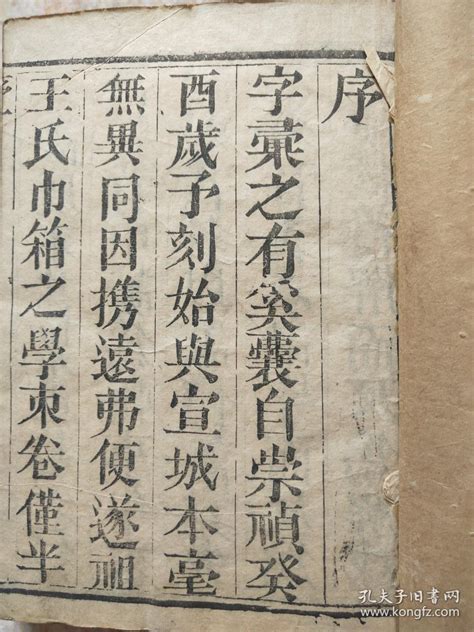 序
字彙之有奚囊自崇禎癸
酉歲予刻始與宣城本毫
無異同因携遠弗便遂祖
王氏巾箱之學朿卷僅半
孔夫子旧书网
www.kongfz.com